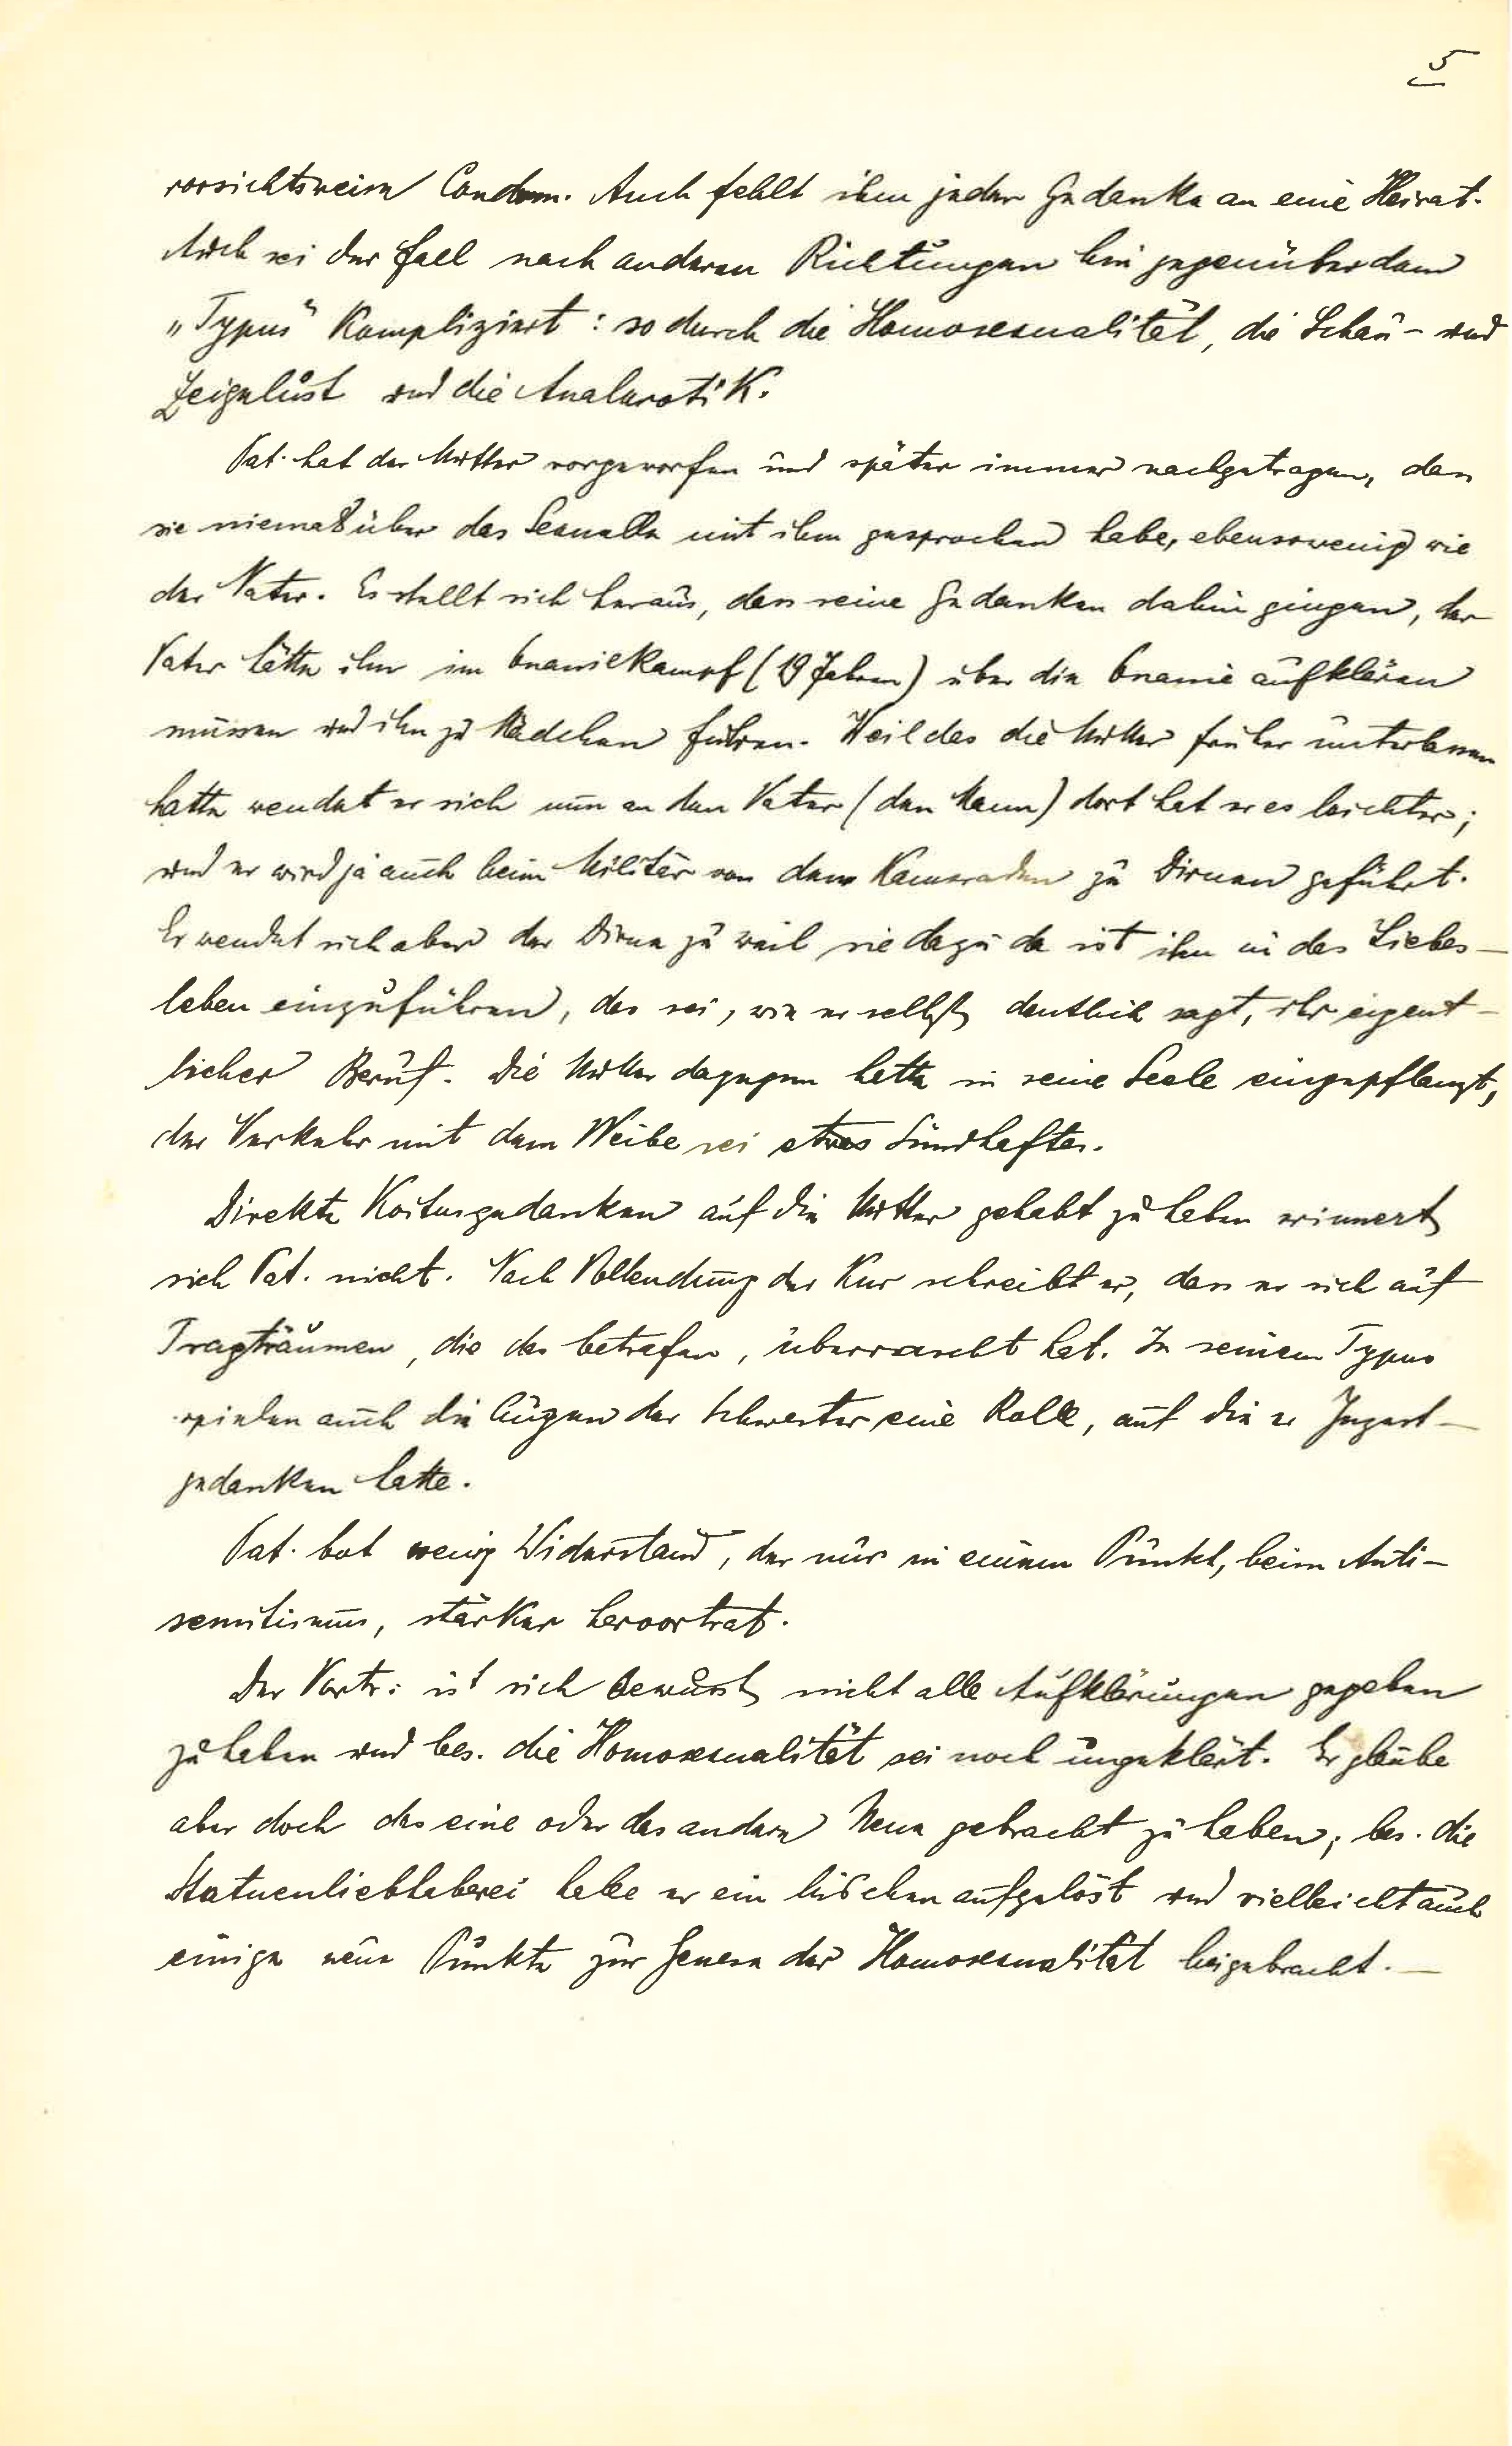 5
vorsichtsweise Condom. Auch fehlt ihm jeder Gedanke an eine Heirat.
Auch sei der Fall nach anderen Richtungen hin gegenüber dem
„Typus“ kompliziert: so durch die Homosexualität, die Schau- und
Zeigelust und die Analerotik.
Pat. hat der Mutter vorgeworfen und später immer nachgetragen, dass
sie niemals über das Sexuelle mit ihm gesprochen habe, ebensowenig wie
der Vater. Es stellt sich heraus, dass seine Gedanken dahin gingen, der
Vater hätte ihn im Onaniekampf (19 Jahren) über die Onanie aufklären
müssen und ihn zu Mädchen führen. Weil das die Mutter früher unterlassen
hatte wendet er sich nun an den Vater (den Mann) dort hat er es leichter;
und er wird ja auch beim Militär von dem Kameraden zu Dirnen geführt.
Er wendet sich aber der Dirne zu weil sie dazu da ist ihn in das Liebes-
leben einzuführen, das sei, wie er selbst deutlich sagt, ihr eigent-
licher Beruf. Die Mutter dagegen hatte in seine Seele eingepflanzt,
der Verkehr mit dem Weibe sei etwas Sündhaftes.
Direkte Koitusgedanken auf die Mutter gehabt zu haben erinnert
sich Pat. nicht. Nach Vollendung der Kur schreibt er, dass er sich auf
Tragträumen, die das betrafen, überrascht hat. In seinem Typus
spielen auch die Augen der Schwester eine Rolle, auf die er Inzest-
gedanken hatte.
Pat. bot wenig Widerstand, der nur in einem Punkt, beim Anti-
semitismus, stärker hervortrat.
Der Vortr: ist sich bewusst nicht alle Aufklärungen gegeben
zu haben und bes. die Homosexualität sei noch ungeklärt. Er glaube
aber doch das eine oder das andere Neue gebracht zu haben; bes. die
Statuenliebhaberei habe er ein bischen aufgelöst und vielleicht auch
einige neue Punkte zur Genese der Homosexualität beigebracht. —